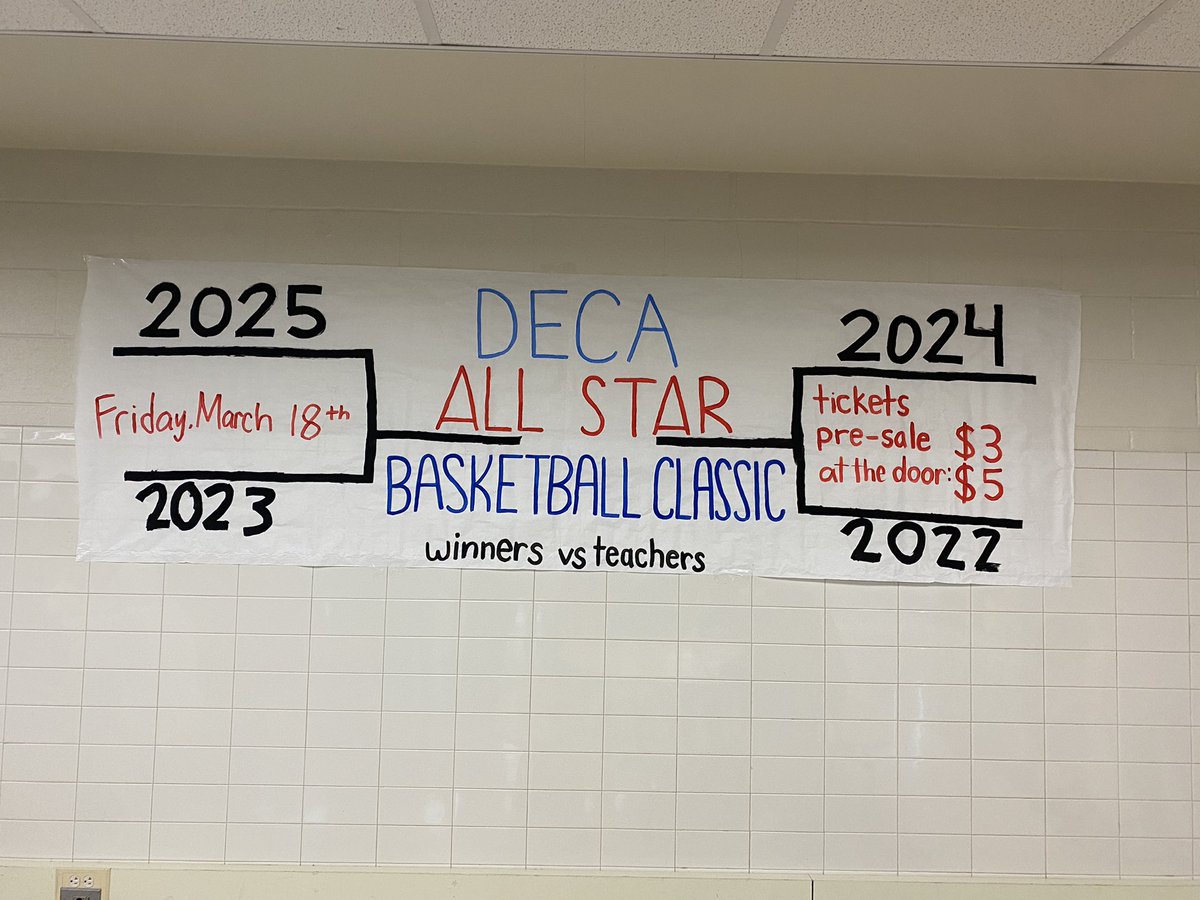 2025
Friday. March 18th
2023
DECA
ALL STAR
BASKETBALL CLASSIC
winners vs teachers
2024
tickets
pre-sale $3
at the door: $5
2022